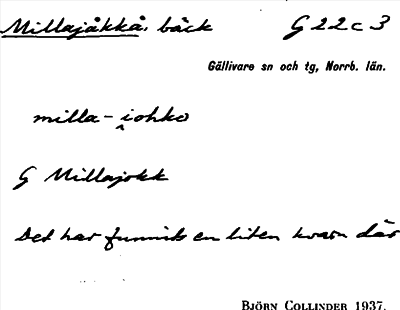 Millajåkkå, bäck G 22 c 3
Gällivare sn och tg, Norrb. län.
milla-i̭ohko
G Millajokk
Det har funnits en liten kvarn där
BJÖRN COLLINDER 1937.